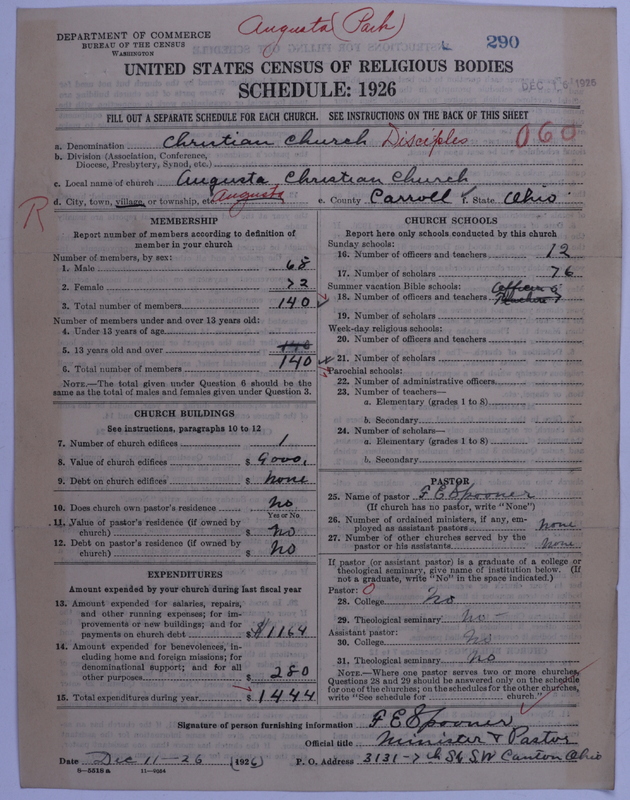 Augusta (Park)
DEPARTMENT OF COMMERCE
BUREAU OF THE CENSUS
WASHINGTON
290
UNITED STATES CENSUS OF RELIGIOUS BODIES
SCHEDULE: 1926
DEC 16 1926
FILL OUT A SEPARATE SCHEDULE FOR EACH CHURCH. SEE INSTRUCTIONS ON THE BACK OF THIS SHEET
a. Denomination Christian Church Disciples 060
b. Division (Association, Conference,
Diocese, Presbytery, Synod, etc.)
c. Local name of church Augusta Christian Church
R d. City, town, village, or township, etc. Augusta e. County Carroll f. State Ohio
MEMBERSHIP
Report number of members according to definition of
member in your church
Number of members, by sex:
1. Male 68
2. Female 72
3. Total number of members 140
Number of members under and over 13 years old:
4. Under 13 years of age
5. 13 years old and over 140
6. Total number of members 140
NOTE.—The total given under Question 6 should be the
same as the total of males and females given under Question 3.
CHURCH BUILDINGS
See instructions, paragraphs 10 to 12
7. Number of church edifices 1
8. Value of church edifices $ 9000.
9. Debt on church edifices $ none
10. Does church own pastor's residence no
Yes or No
11. Value of pastor's residence (if owned by
church) $ no
12. Debt on pastor's residence (if owned by
church) $ no
EXPENDITURES
Amount expended by your church during last fiscal year
13. Amount expended for salaries, repairs,
and other running expenses; for im-
provements or new buildings; and for
payments on church debt $ $1164
14. Amount expended for benevolences, in-
cluding home and foreign missions; for
denominational support; and for all
other purposes $ 280
15. Total expenditures during year $ 1444
CHURCH SCHOOLS
Report here only schools conducted by this church
Sunday schools:
16. Number of officers and teachers 12
17. Number of scholars 76
Summer vacation Bible schools: Officers &
18. Number of officers and teachers Teachers 7
19. Number of scholars
Week-day religious schools:
20. Number of officers and teachers
21. Number of scholars
Parochial schools:
22. Number of administrative officers
23. Number of teachers—
a. Elementary (grades 1 to 8)
b. Secondary
24. Number of scholars—
a. Elementary (grades 1 to 8)
b. Secondary
PASTOR
25. Name of pastor F E Spooner
(If church has no pastor, write "None")
26. Number of ordained ministers, if any, em-
ployed as assistant pastors none
27. Number of other churches served by the
pastor or his assistants none
If pastor (or assistant pastor) is a graduate of a college or
theological seminary, give name of institution below. (If
not a graduate, write "No" in the space indicated.)
Pastor: 0
28. College No
29. Theological seminary No -
Assistant pastor:
30. College No
31. Theological seminary No
NOTE.—Where one pastor serves two or more churches,
Questions 28 and 29 should be answered only on the schedule
for one of the churches; on the schedules for the other churches,
write "See schedule for church."
Signature of person furnishing information F E Spooner
Official title Minister & Pastor
Date Dec 11-26 (1926) P. O. Address 3131-7th St S.W Canton Ohio
8-5518a 11-9554